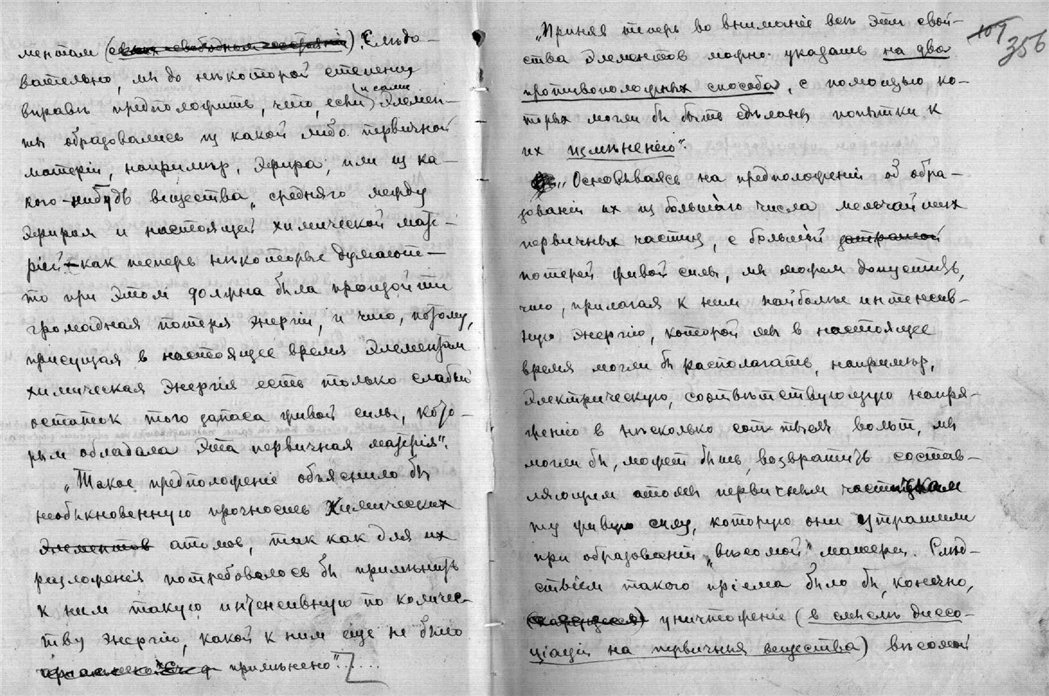 ментам (~~свободном состоянiи~~). Слѣдо-
вательно, мы до нѣкоторой степени
вправѣ предположить, что, если и сами элемен-
ты образовались из какой либо первичной
матерiи, напримѣр, эфира, или из ка-
кого-нибудь вещества, средняго между
эфиром и настоящей химической мате-
рiей – как теперь нѣкоторые думают –
то при этом должна была произойти
громадная потеря энергiи, и что, потому,
присущая в настоящее время элементам
химическая энергiя есть только слабый
остаток того запаса живой силы, кото-
рым обладала эта первичная матерiя".
„Такое предположенiе объяснило бы
необыкновенную прочность химических
~~элементов~~ атомов, так как для их
разложенiя потребовалось бы примѣнить
к ним такую интенсивную по количес-
тву энергiю, какой к ним еще не было
примѣнено"....
~~107~~
356
„Приняв теперь во вниманiе всѣ эти свой-
ства элементов можно указать на два
противоположных способа, с помощью ко-
торых могли бы быть сдѣланы попытки к
их измѣненiю".
„Основываясь на предположенiи об обра-
зованiи их из большаго числа мельчайших
первичных частиц, с большой ~~затратой~~
потерей живой силы, мы можем допустить,
что, прилагая к ним наиболѣе интенсив-
ную энергiю, которой мы в настоящее
время могли бы располагать, напримѣр,
электрическую, соотвѣтствующую напря-
женiю в нѣсколько сот тысяч вольт, мы
могли бы, может быть, возвратить состав-
ляющим атомы первичным частичкам
ту живую силу, которую они утратили
при образованiи „вѣсомой" матерiи. Слѣд-
ствiем такого прiема было бы, конечно,
уничтоженiе (в смыслѣ диссо-
цiацiи на первичныя вещества) вѣсомой